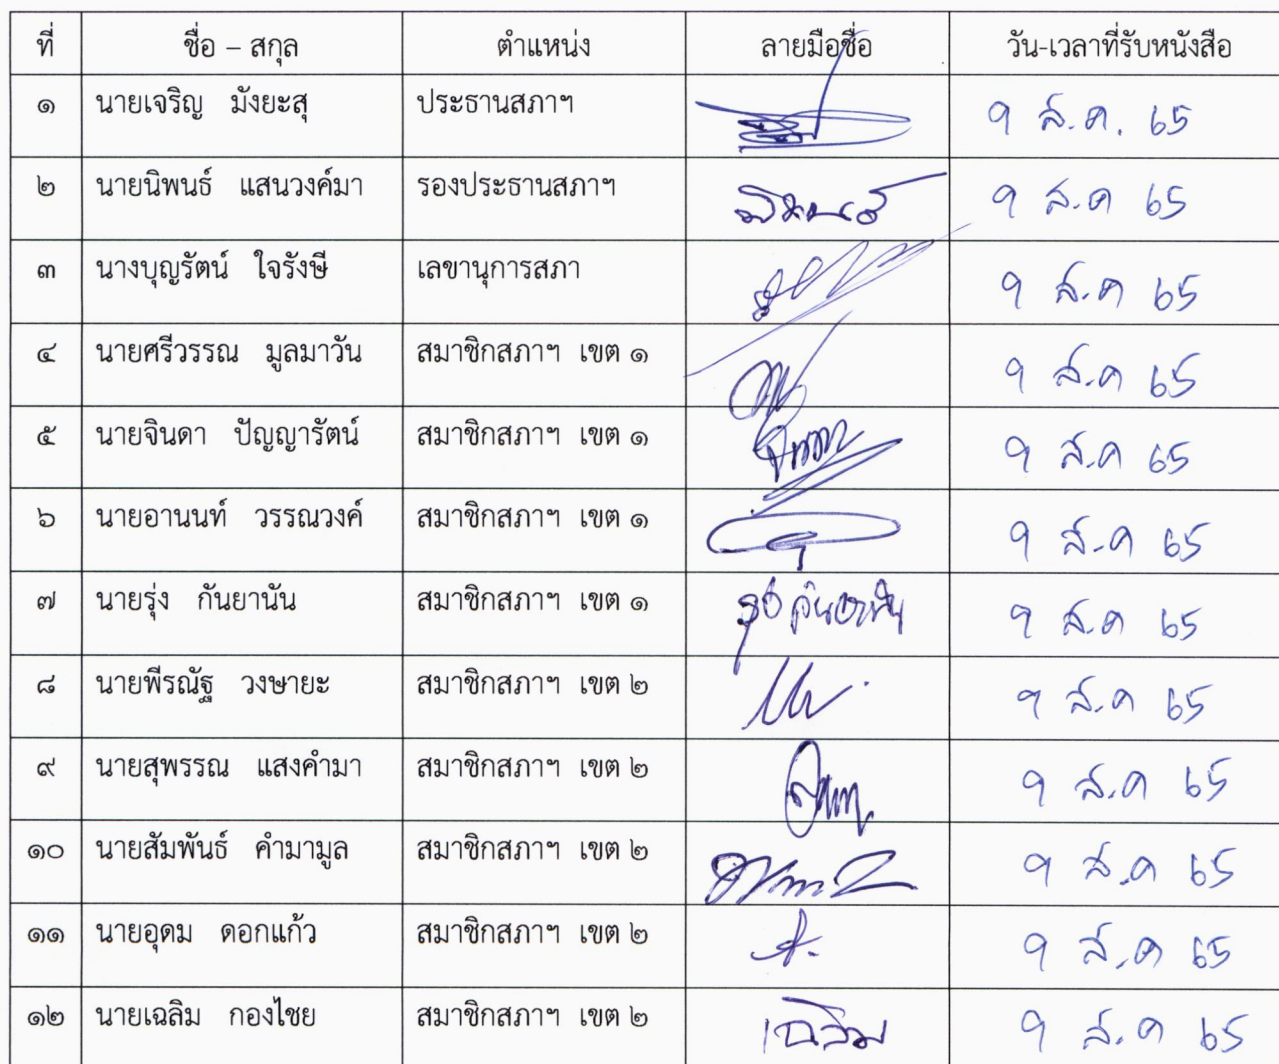 ที่ ชื่อ – สกุล ตำแหน่ง ลายมือชื่อ วัน-เวลาที่รับหนังสือ
๑ นายเจริญ มังยะสุ ประธานสภาฯ 9 ส.ค. 65
๒ นายนิพนธ์ แสนวงค์มา รองประธานสภาฯ 9 ส.ค 65
๓ นางบุญรัตน์ ใจรังษี เลขานุการสภา 9 ส.ค 65
๔ นายศรีวรรณ มูลมาวัน สมาชิกสภาฯ เขต ๑ 9 ส.ค 65
๕ นายจินดา ปัญญารัตน์ สมาชิกสภาฯ เขต ๑ 9 ส.ค 65
๖ นายอานนท์ วรรณวงค์ สมาชิกสภาฯ เขต ๑ 9 ส.ค 65
๗ นายรุ่ง กันยานัน สมาชิกสภาฯ เขต ๑ รุ่ง กันยานัน 9 ส.ค 65
๘ นายพีรณัฐ วงษายะ สมาชิกสภาฯ เขต ๒ 9 ส.ค 65
๙ นายสุพรรณ แสงคำมา สมาชิกสภาฯ เขต ๒ 9 ส.ค 65
๑๐ นายสัมพันธ์ คำมามูล สมาชิกสภาฯ เขต ๒ 9 ส.ค 65
๑๑ นายอุดม ดอกแก้ว สมาชิกสภาฯ เขต ๒ 9 ส.ค 65
๑๒ นายเฉลิม กองไชย สมาชิกสภาฯ เขต ๒ เฉลิม 9 ส.ค 65